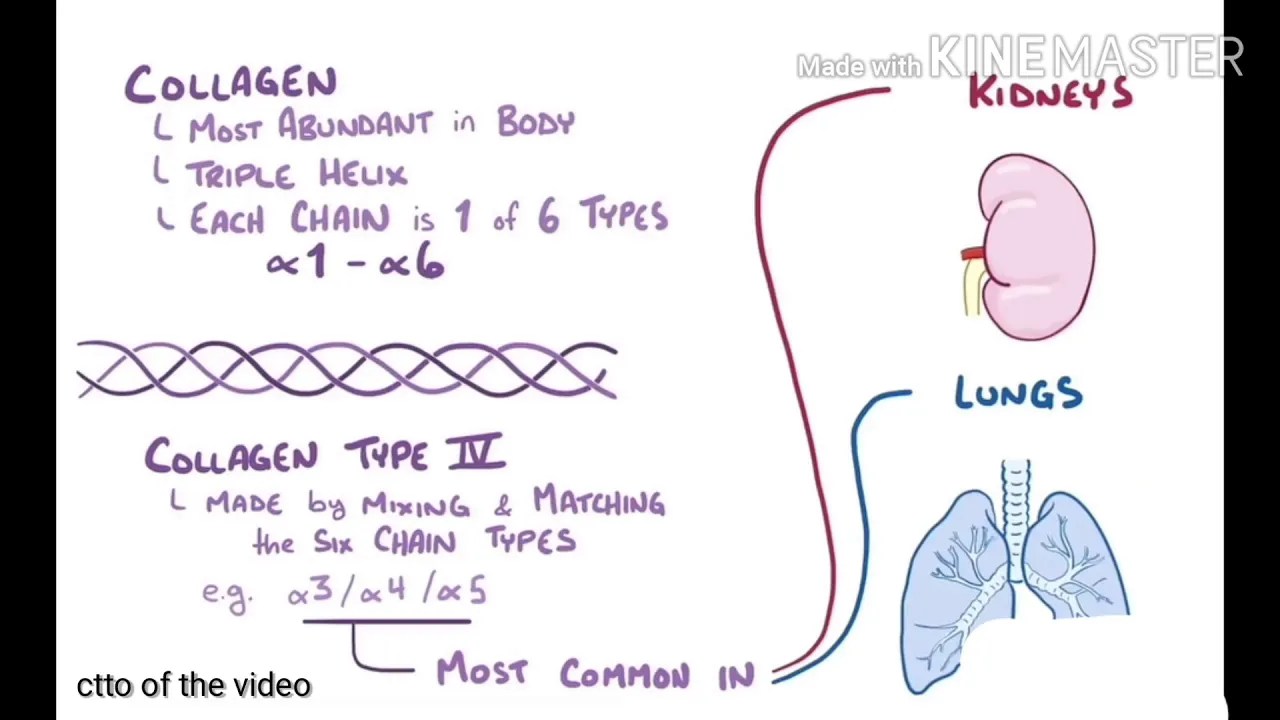 COLLAGEN
MOST ABUNDANT in BODY
TRIPLE HELIX
EACH CHAIN is 1 of 6 TYPES
∝1 - ∝6
COLLAGEN TYPE IV
MADE by MIXING & MATCHING
the SIX CHAIN TYPES
e.g. ∝3/∝4/∝5
MOST COMMON IN
ctto of the video
Made with KINEMASTER
KIDNEYS
LUNGS